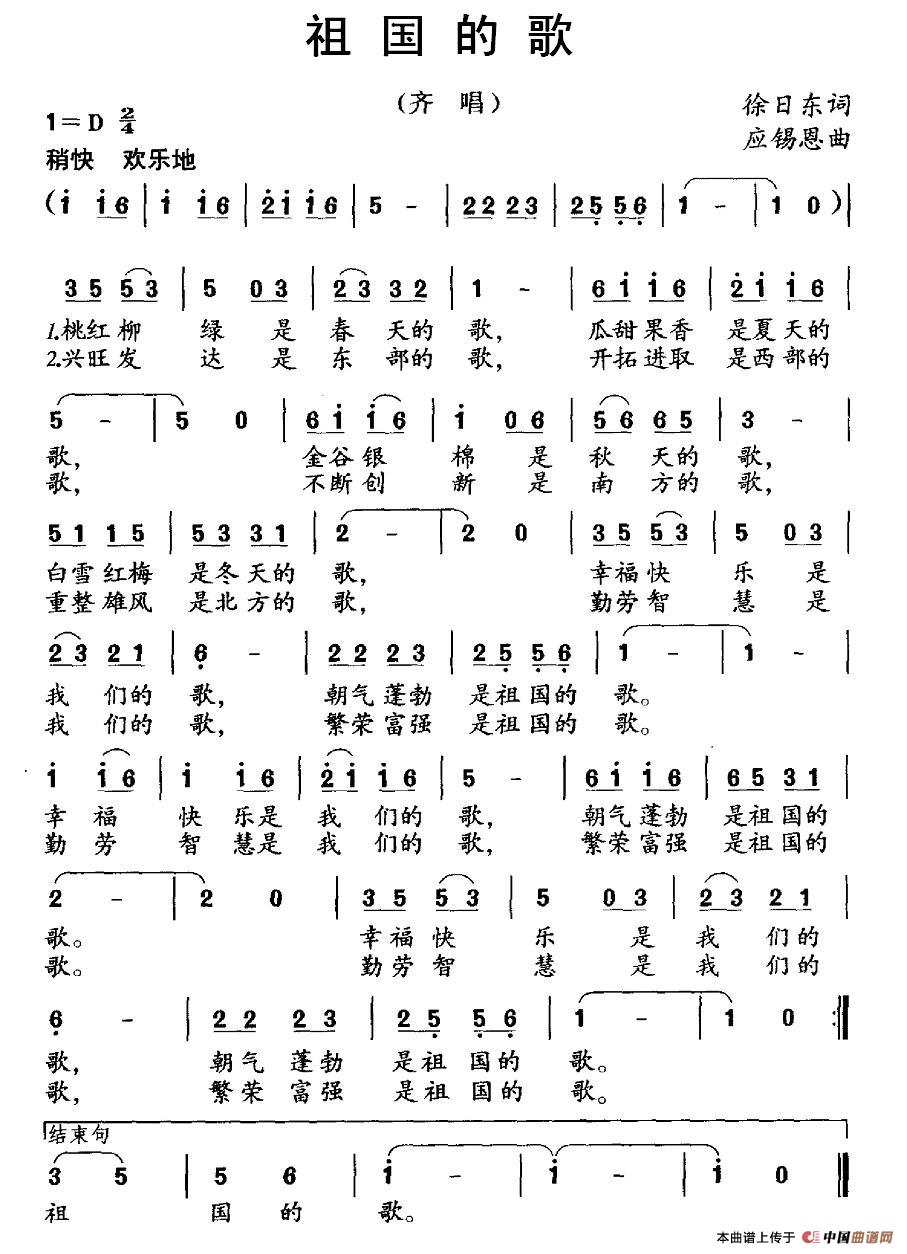 祖国的歌
(齐 唱)
1=D 2/4
徐日东词
应锡恩曲
稍快 欢乐地
(i i6 | i i6 | 2i i6 | 5 - | 22 23 | 25 56 | 1 - | 1 0)|
35 53 | 5 03 | 23 32 | 1 - | 6i i6 | 2i i6 |
1.桃红柳 绿 是 春 天的 歌, 瓜甜果香 是夏天的
2.兴旺发 达 是 东 部的 歌, 开拓进取 是西部的
5 - | 5 0 | 6i i6 | i 06 | 56 65 | 3 - |
歌, 金谷银 棉 是 秋 天的 歌,
歌, 不断创 新 是 南 方的 歌,
51 15 | 53 31 | 2 - | 2 0 | 35 53 | 5 03 |
白雪红梅 是冬天的 歌, 幸福快 乐 是
重整雄风 是北方的 歌, 勤劳智 慧 是
23 21 | 6 - | 22 23 | 25 56 | 1 - | 1 - |
我 们的 歌, 朝气蓬勃 是祖国的 歌。
我 们的 歌, 繁荣富强 是祖国的 歌。
i i6 | i i6 | 2i i6 | 5 - | 6i i6 | 65 31 |
幸 福 快 乐是 我 们的 歌, 朝气蓬勃 是祖国的
勤 劳 智 慧是 我 们的 歌, 繁荣富强 是祖国的
2 - | 2 0 | 35 53 | 5 03 | 23 21 |
歌。 幸福快 乐 是 我 们的
歌。 勤劳智 慧 是 我 们的
6 - | 22 23 | 25 56 | 1 - | 1 0 :‖
歌, 朝气蓬勃 是祖国的 歌。
歌, 繁荣富强 是祖国的 歌。
结束句
3 5 | 5 6 | i - | i - | i 0 ‖
祖 国 的 歌。
本曲谱上传于 中国曲谱网